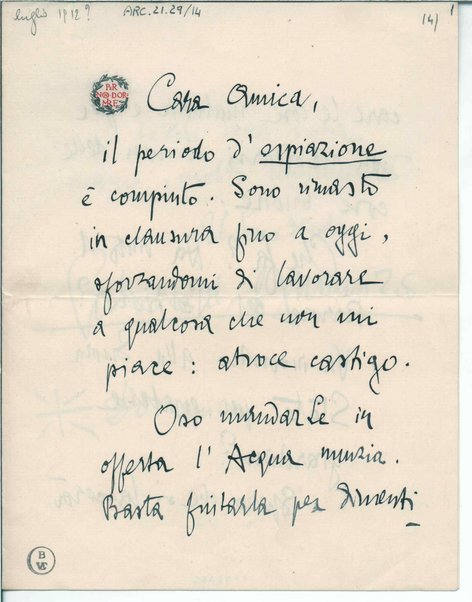 luglio 1912?
ARC.21.29/14
14)
PER
NON DOR
MIRE
Cara Amica,
il periodo d'espiazione
è compiuto. Sono rimasto
in clausura fino a oggi,
sforzandomi di lavorare
a qualcosa che non mi
piace: atroce castigo.
Oso mandarle in
offerta l'Acqua nunzia.
Basta fiutarla per dimenti_
B
VE